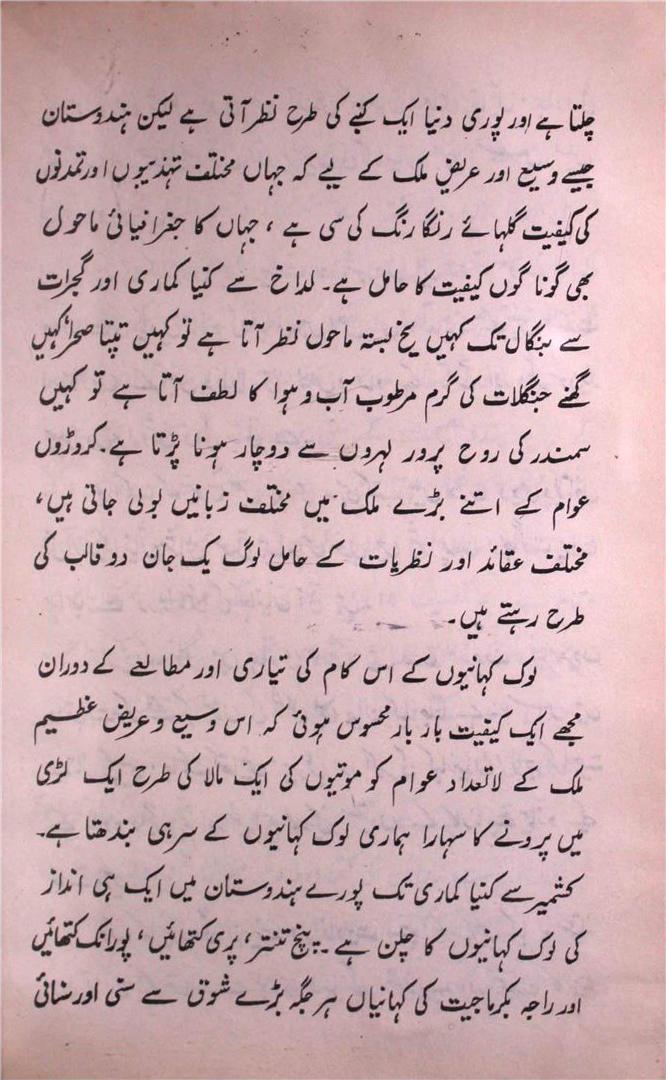 چلتا ہے اور پوری دنیا ایک کنبے کی طرح نظر آتی ہے لیکن ہندوستان
جیسے وسیع اور عریض ملک کے لیے کہ جہاں مختلف تہذیبوں اور تمدنوں
کی کیفیت گلہائے رنگا رنگ کی سی ہے ، جہاں کا جغرافیائی ماحول
بھی گونا گوں کیفیت کا حامل ہے۔ لداخ سے کنیا کماری اور گجرات
سے بنگال تک کہیں یخ بستہ ماحول نظر آتا ہے تو کہیں تپتا صحرا، کہیں
گھنے جنگلات کی گرم مرطوب آب و ہوا کا لطف آتا ہے تو کہیں
سمندر کی روح پرور لہروں سے دوچار ہونا پڑتا ہے۔ کروڑوں
عوام کے اتنے بڑے ملک میں مختلف زبانیں بولی جاتی ہیں،
مختلف عقائد اور نظریات کے حامل لوگ یک جان دو قالب کی
طرح رہتے ہیں۔
لوک کہانیوں کے اس کام کی تیاری اور مطالعے کے دوران
مجھے ایک کیفیت بار بار محسوس ہوئی کہ اس وسیع و عریض عظیم
ملک کے لاتعداد عوام کو موتیوں کی ایک مالا کی طرح ایک لڑی
میں پرونے کا سہارا ہماری لوک کہانیوں کے سر ہی بندھتا ہے۔
کشمیر سے کنیا کماری تک پورے ہندوستان میں ایک ہی انداز
کی لوک کہانیوں کا چلن ہے ۔ پنچ تنتر، پری کتھائیں، پورانک کتھائیں
اور راجہ بکرماجیت کی کہانیاں ہر جگہ بڑے شوق سے سنی اور سنائی